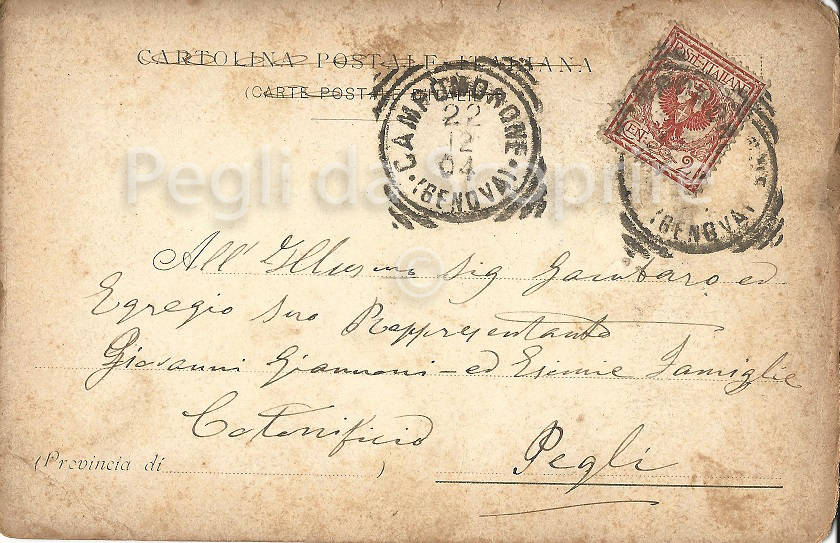 CARTOLINA POSTALE ITALIANA
(CARTE POSTALE D'ITALIE)
POSTE ITALIANE
CENT. 2
CAMPOMORONE
22
12
04
(GENOVA)
(GENOVA)
Pegli da Scoprire
©
All' Illus.mo Sig Gambaro ed
Egregio suo Rappresentante
Giovanni Giannoni - ed Esimie Famiglie
Cotonificio
Pegli
(Provincia di )